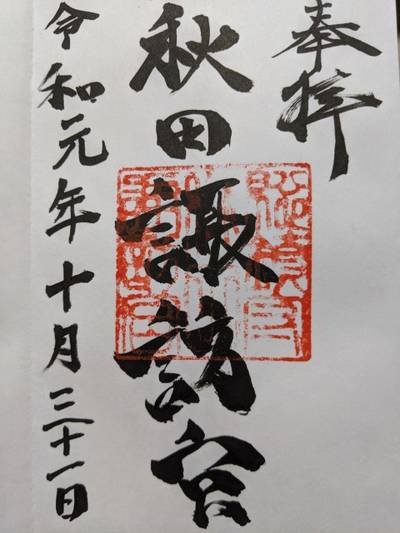 奉拝
秋田諏訪宮
令和元年十月三十一日